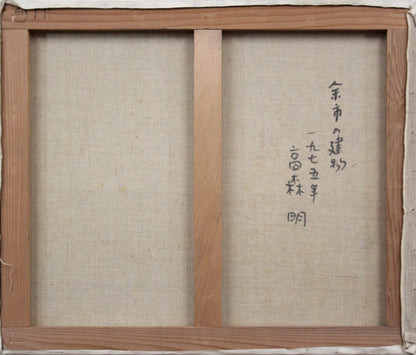 余市の建物
一九七五年
高森明